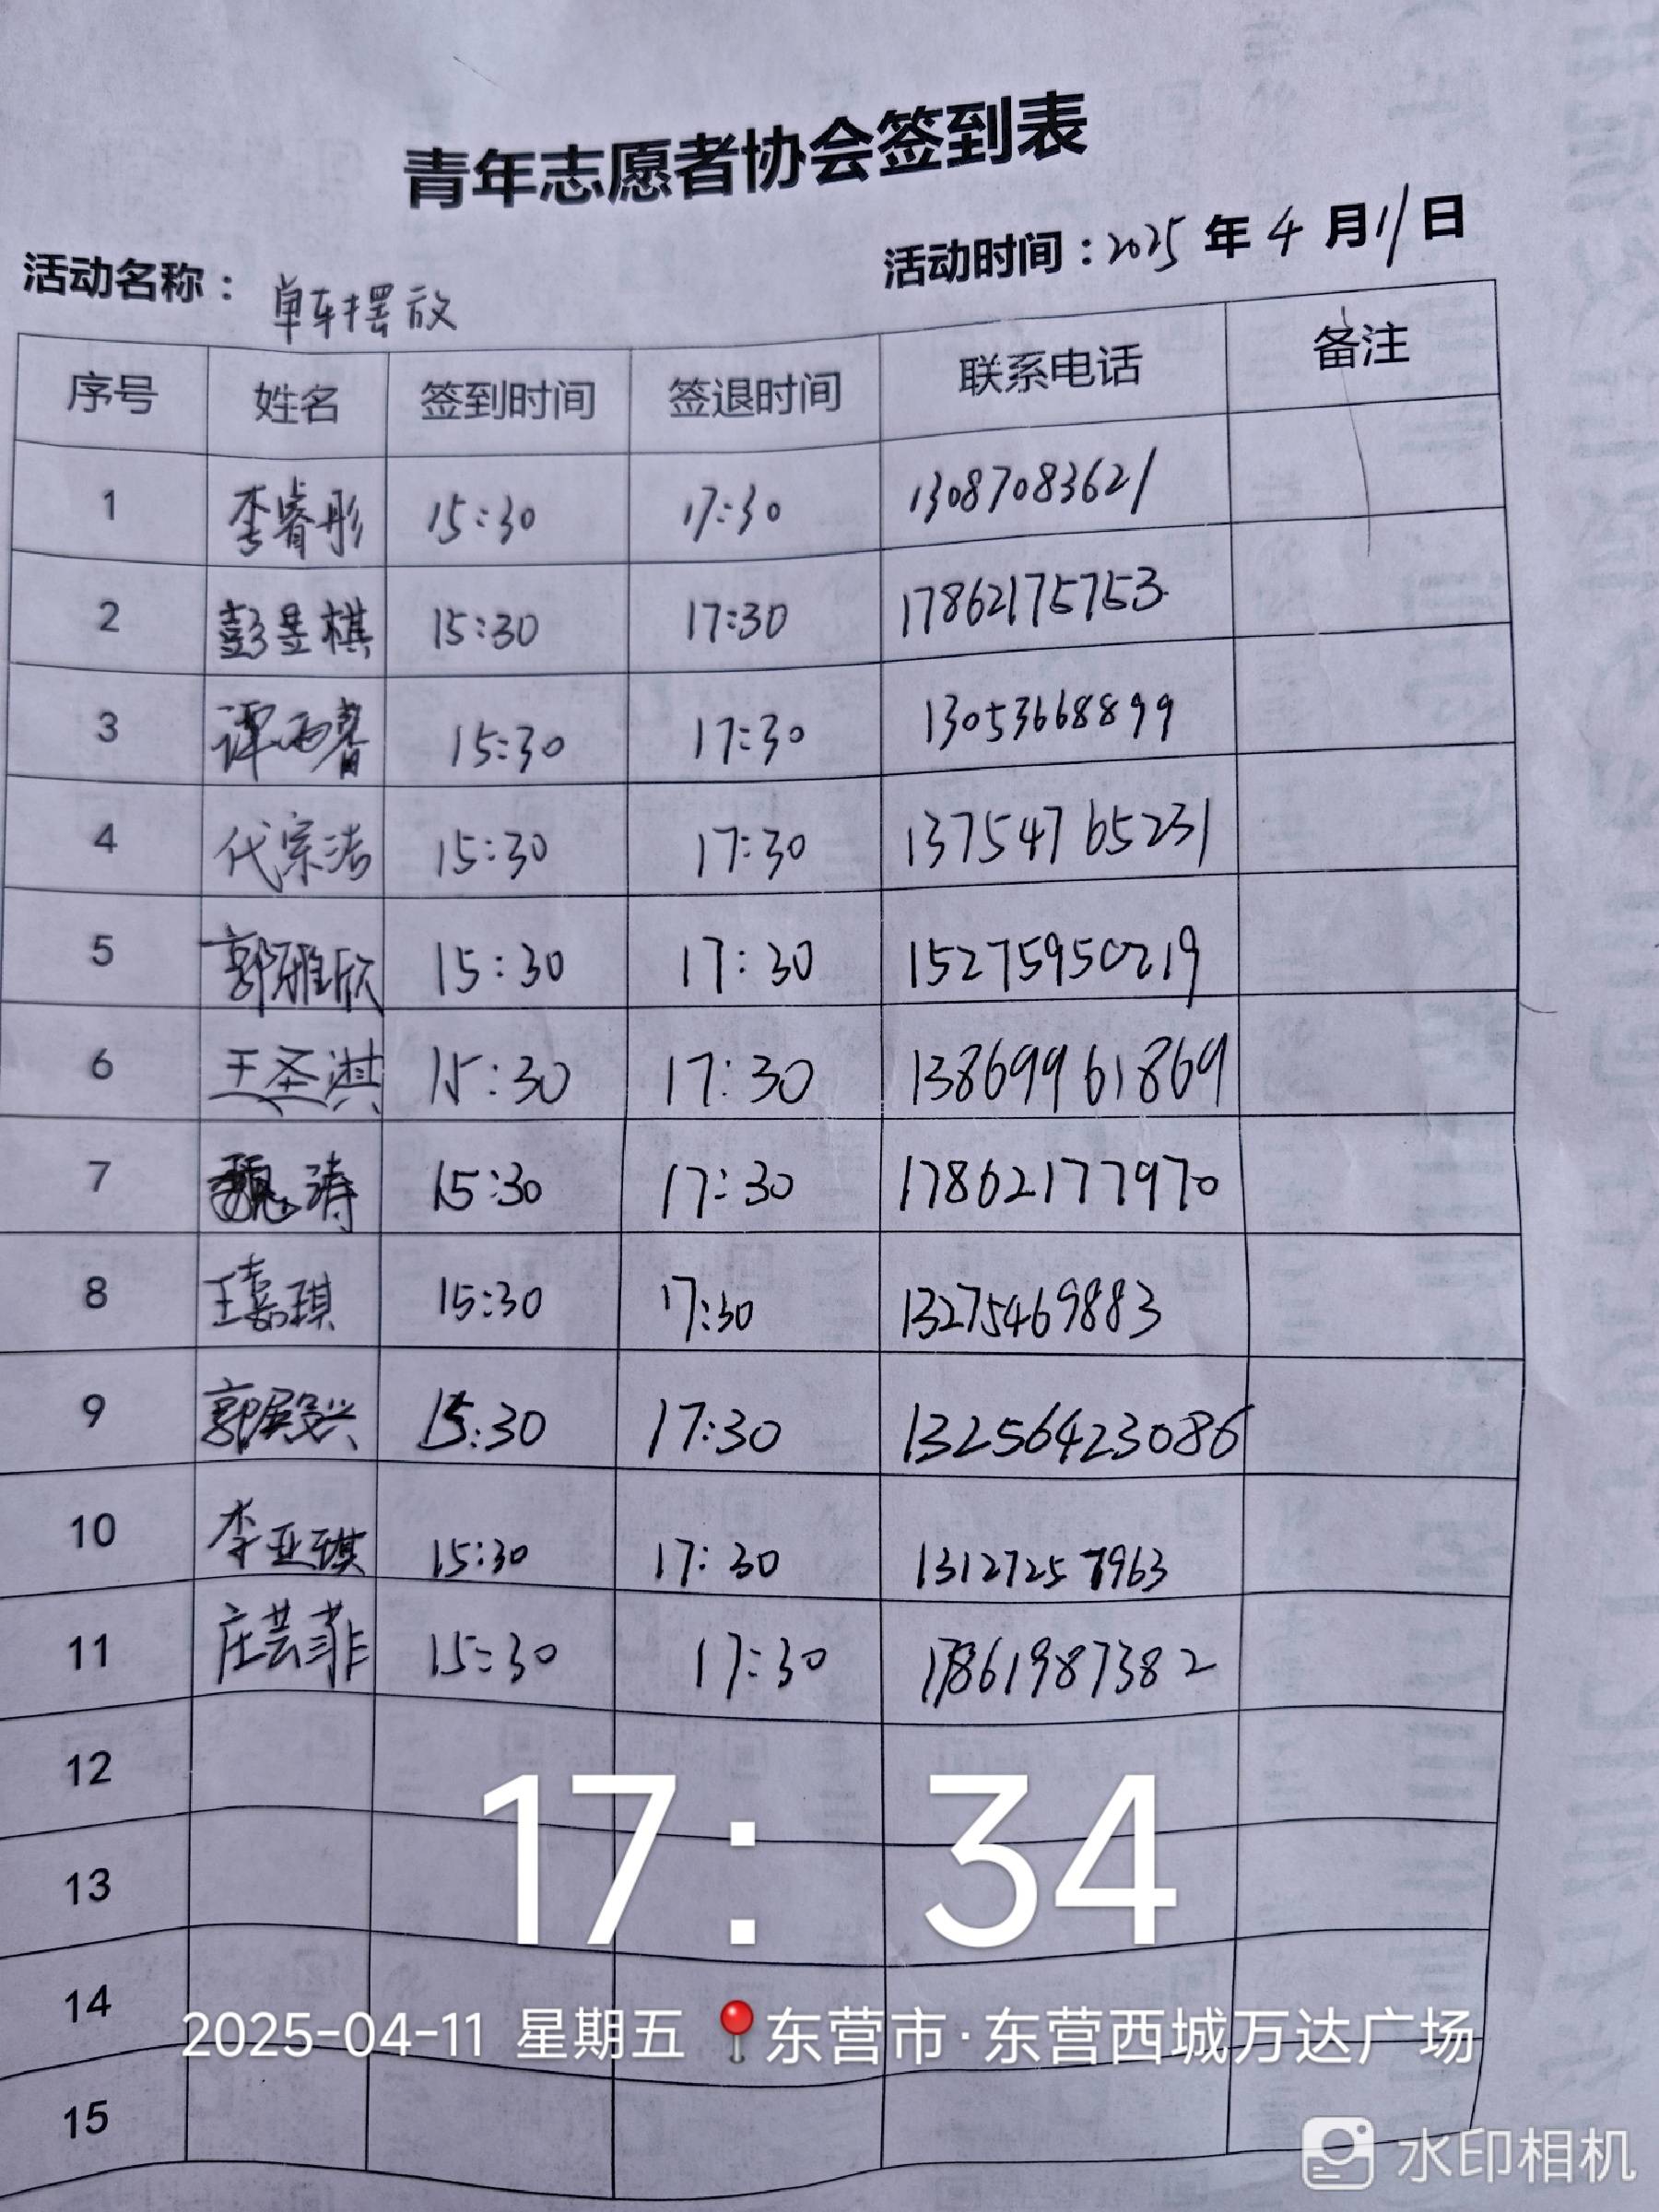 青年志愿者协会签到表
活动名称： 单车摆放 活动时间：2025 年 4 月 11 日
序号 姓名 签到时间 签退时间 联系电话 备注
1 李睿彤 15:30 17:30 13087083621
2 彭昱棋 15:30 17:30 17862175753
3 谭雨馨 15:30 17:30 13053668899
4 代宗浩 15:30 17:30 13754765231
5 郭雅欣 15:30 17:30 15275950219
6 王圣淇 15:30 17:30 13869961869
7 魏涛 15:30 17:30 17862177970
8 王嘉琪 15:30 17:30 13275469883
9 郭殿兴 15:30 17:30 13256423086
10 李亚琪 15:30 17:30 13127257963
11 庄芸菲 15:30 17:30 17861987382
12
13
17:34
14
2025-04-11 星期五 东营市·东营西城万达广场
15
水印相机